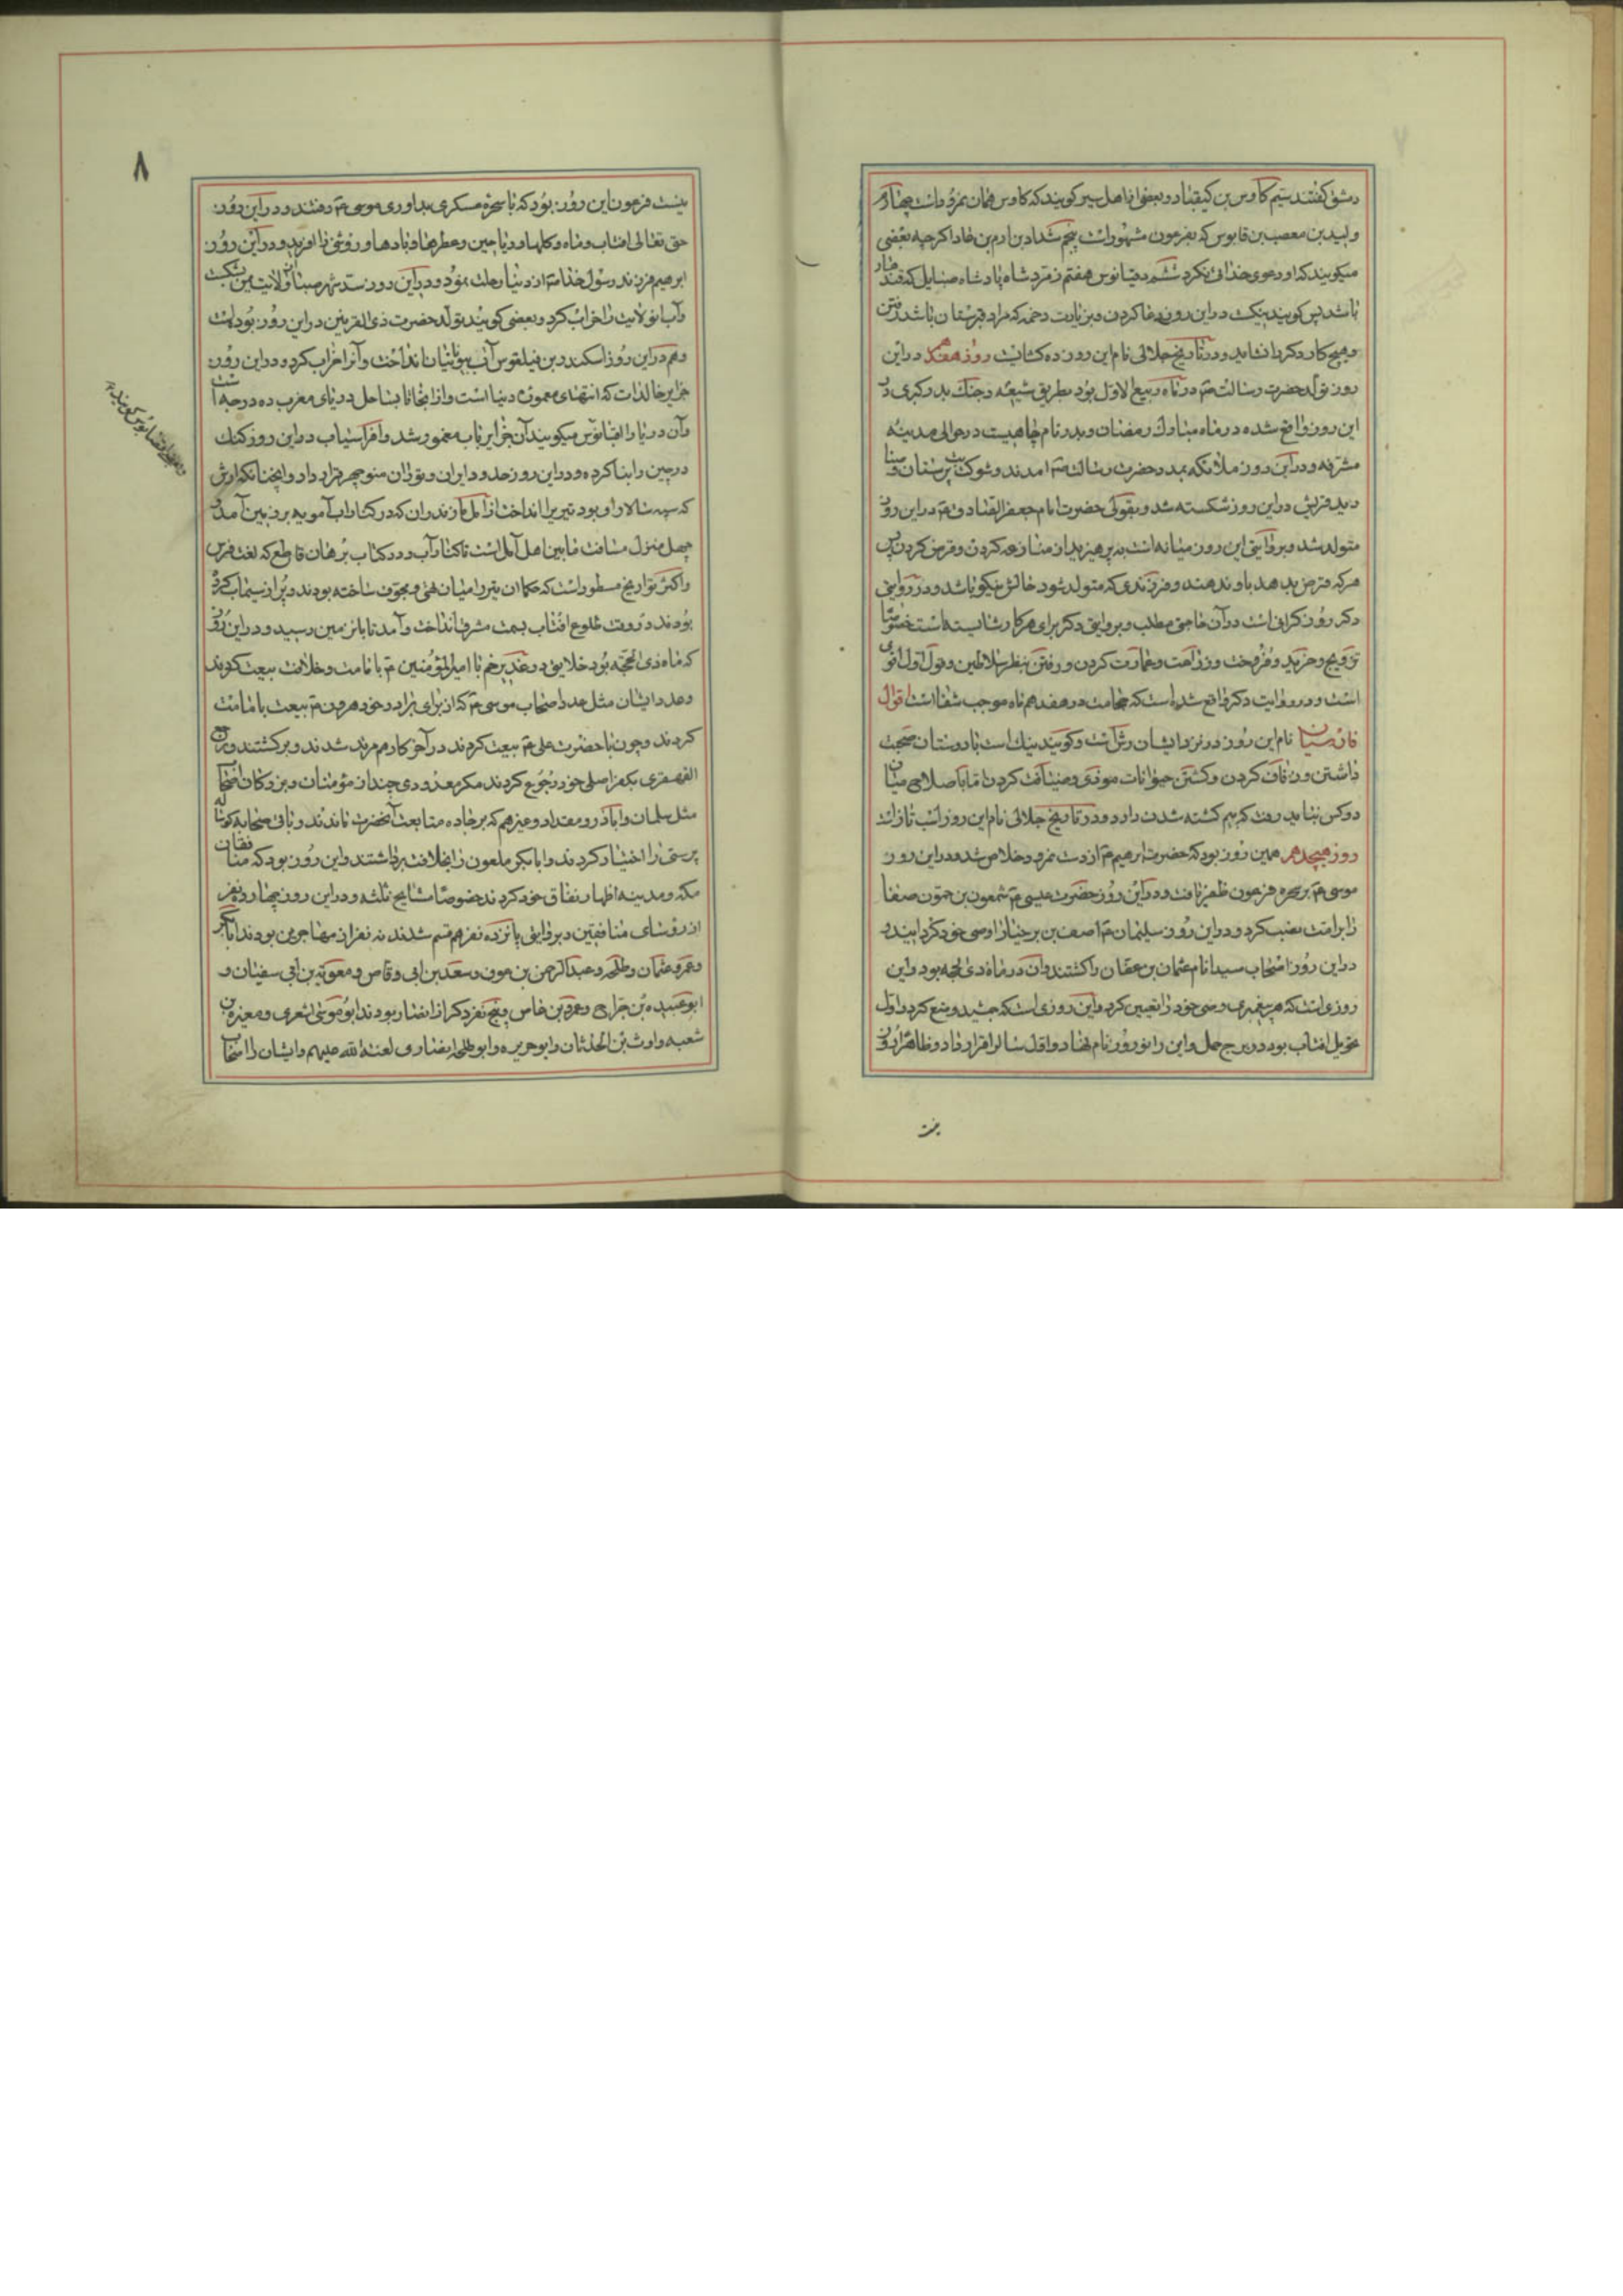 دمشق گفتند سیم کاوس بن کیقباد و بعضی از اهل سیر کویند که کاوس همان نمرود است چهارم
ولید بن مصعب بن قابوس که بفرعون مشهور است پنجم شداد بن ارم بن عاد اکرچه بعضی
میکویند که او دعوی خدائی نکرد ششم دقیانوس هفتم زمرد شاه پادشاه
باشد پس کویند نیکست در این روز دعا کردن و بزیارت دخمه که مراد قبرستان باشد رفتن
و هیچ کار دکر را نشاید و در تاریخ جلالی نام این روز ده روز هفدهم در این
روز تولد حضرت رسالت م در ماه ربیع الاول بود بطریق شیعه و جنک بدر کبری در
این روز واقع شده در ماه مبارک رمضان و بدر نام چاهیست در حوالی مدینه
مشرفه و در این روز ملائکه بمدد حضرت رسالت م امدند و شوکت بت پرستان و
قریش در این روز شکسته شد و بقولی حضرت امام جعفر الصادق م در این روز
متولد شد و بروایتی این روز میانه است بپرهیزید از منازعه کردن و قرض کردن پس
هرکه قرض بدهد باو ندهند و فرزندی که متولد شود حالش نیکو باشد و در روایتی
دکر روز کرانی است در آن حاجتی مطلب و بروایتی دکر برای هر کار شایسته است خصوصا
تزویج و خرید و فروخت و زراعت و عمارت کردن و رفتن بنظر سلاطین و قول اول اقوی
است و در روایت دکر واقع شده است که حجامت در هفدهم ماه موجب شفا است اقوال
فارسیان نام این روز در نزد ایشان رش است و کویند نیک است با دوستان صحبت
داشتن و زفاف کردن و کشتن حیوانات موذی و ضیافت کردن اما باصلاح میان
دو کس نباید رفت که بیم کشته شدن دارد و در تاریخ جلالی نام این روز اسب تاز است
روز هیجدهم همین روز بود که حضرت ابرهیم م از دست نمرود خلاص شد و در این روز
موسی م بر سحره فرعون ظفر یافت و در این روز حضرت عیسی م شمعون بن حمون صفا
را بامامت نصب کرد و در این روز سلیمان م آصف بن برخیا را وصی خود کردانید و
در این روز اصحاب سید انام عثمان بن عفان را کشتند و آن در ماه ذی الحجه بود و این
روزی است که هر پیغمبری وصی خود را تعیین کرد و این روزی است که جمشید وضع کرد و اول
تحویل افتاب بود در برج حمل و این را نوروز نام نهاد و اول سال را قرار داد و ظاهرا روز
زینت
۸
زینت فرعون این روز بود که با سحره و لشکری بداوری موسی م رفتند و در این روز
حق تعالی افتاب و ماه و کلها و ریاحین و عطرها و بادها و روشنی را افرید و در این روز
ابرهیم فرزند رسول خدا م از دنیا رحلت نمود و در این روز سد شهر سبا از ولایت یمن شکست
و آب انولایت را خراب کرد و بعضی کویند تولد حضرت ذی القرنین در این روز بوده است
و هم در این روز اسکندر بن فیلقوس آب بیونانیان انداخت و آنرا خراب کرد و در این روز
جزایر خالدات که انتهای معموره دنیا است و از انجا تا بساحل دریای مغرب ده درجه است
و آن دریا را اقیانوس میکویند آن جزایر نایاب معمور شد و افراسیاب در این روز کنک
در چین را بنا کرده و در این روز حدود ایران و توران منوچهر قرار داد و انچنان که ارش
که سپه سالار او بود تیر را انداخت از آمل مازندران که در کنار اب آمویه بر زمین آمد
چهل منزل مسافت ما بین اهل آمل است تا کنار آب و در کتاب برهان قاطع که لغت فرس
و اکثر تواریخ مسطور است که حکما آن تیر را میان تهی و مجوف ساخته بودند و پر از سیماب کرده
بودند در وقت طلوع افتاب بسمت مشرق انداخت و آمد تا بر زمین رسید و در این روز
که ماه ذی الحجه بود خلایق در غدیر خم با امیر المؤمنین م بامامت و خلافت بیعت کردند
و عدد ایشان مثل عدد اصحاب موسی م که از برای برادر خود هرون م بیعت بامامت
کردند و چون با حضرت علی م بیعت کردند در آخر کار هم مرتد شدند و برکشتند و رجع
القهقری بکفر اصلی خود رجوع کردند مکر معدودی چند از مؤمنان و بزرکان اصحاب
مثل سلمان و اباذر و مقداد و غیرهم که بر جاده متابعت آنحضرت ماندند و باقی صحابه کوساله
پرستی را اختیار کردند و ابابکر ملعون را بخلافت برداشتند و این روز بود که منافقان
مکه و مدینه اظهار نفاق خود کردند خصوصا مشایخ ثلثه و در این روز چهارده نفر
از روسای منافقین و بروایتی پانزده نفر هم قسم شدند نه نفر از مهاجرین بودند ابابکر
و عمر و عثمان و طلحه و عبدالرحمن بن عوف و سعد بن ابی وقاص و معویة بن ابی سفیان و
ابو عبیده بن جراح و عمرو بن عاص و پنج نفر دکر از انصار بودند ابو موسی اشعری و مغیرة بن
شعبه و اوس بن الحدثان و ابو هریره و ابو طلحه انصاری لعنة الله علیهم و ایشان را اصحاب